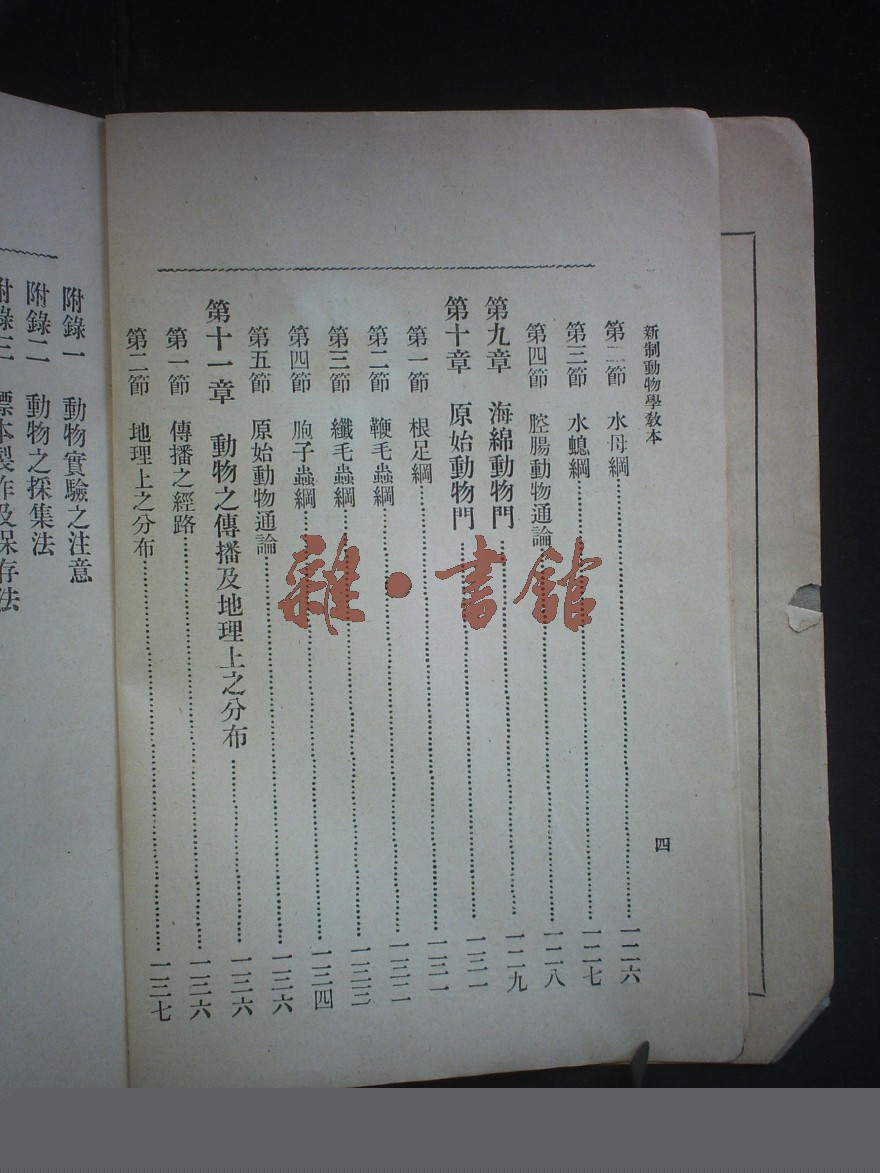 新制動物學敎本
四
第二節　水母綱………一二六
第三節　水螅綱………一二七
第四節　腔腸動物通論………一二八
第九章　海綿動物門………一二九
第十章　原始動物門………一三一
第一節　根足綱………一三一
第二節　鞭毛蟲綱………一三二
第三節　纖毛蟲綱………一三三
第四節　胞子蟲綱………一三四
第五節　原始動物通論………一三六
第十一章　動物之傳播及地理上之分布………一三六
第一節　傳播之經路………一三六
第二節　地理上之分布………一三七
附錄一　動物實驗之注意
附錄二　動物之採集法
附錄三　標本製作及保存法
雜·書館